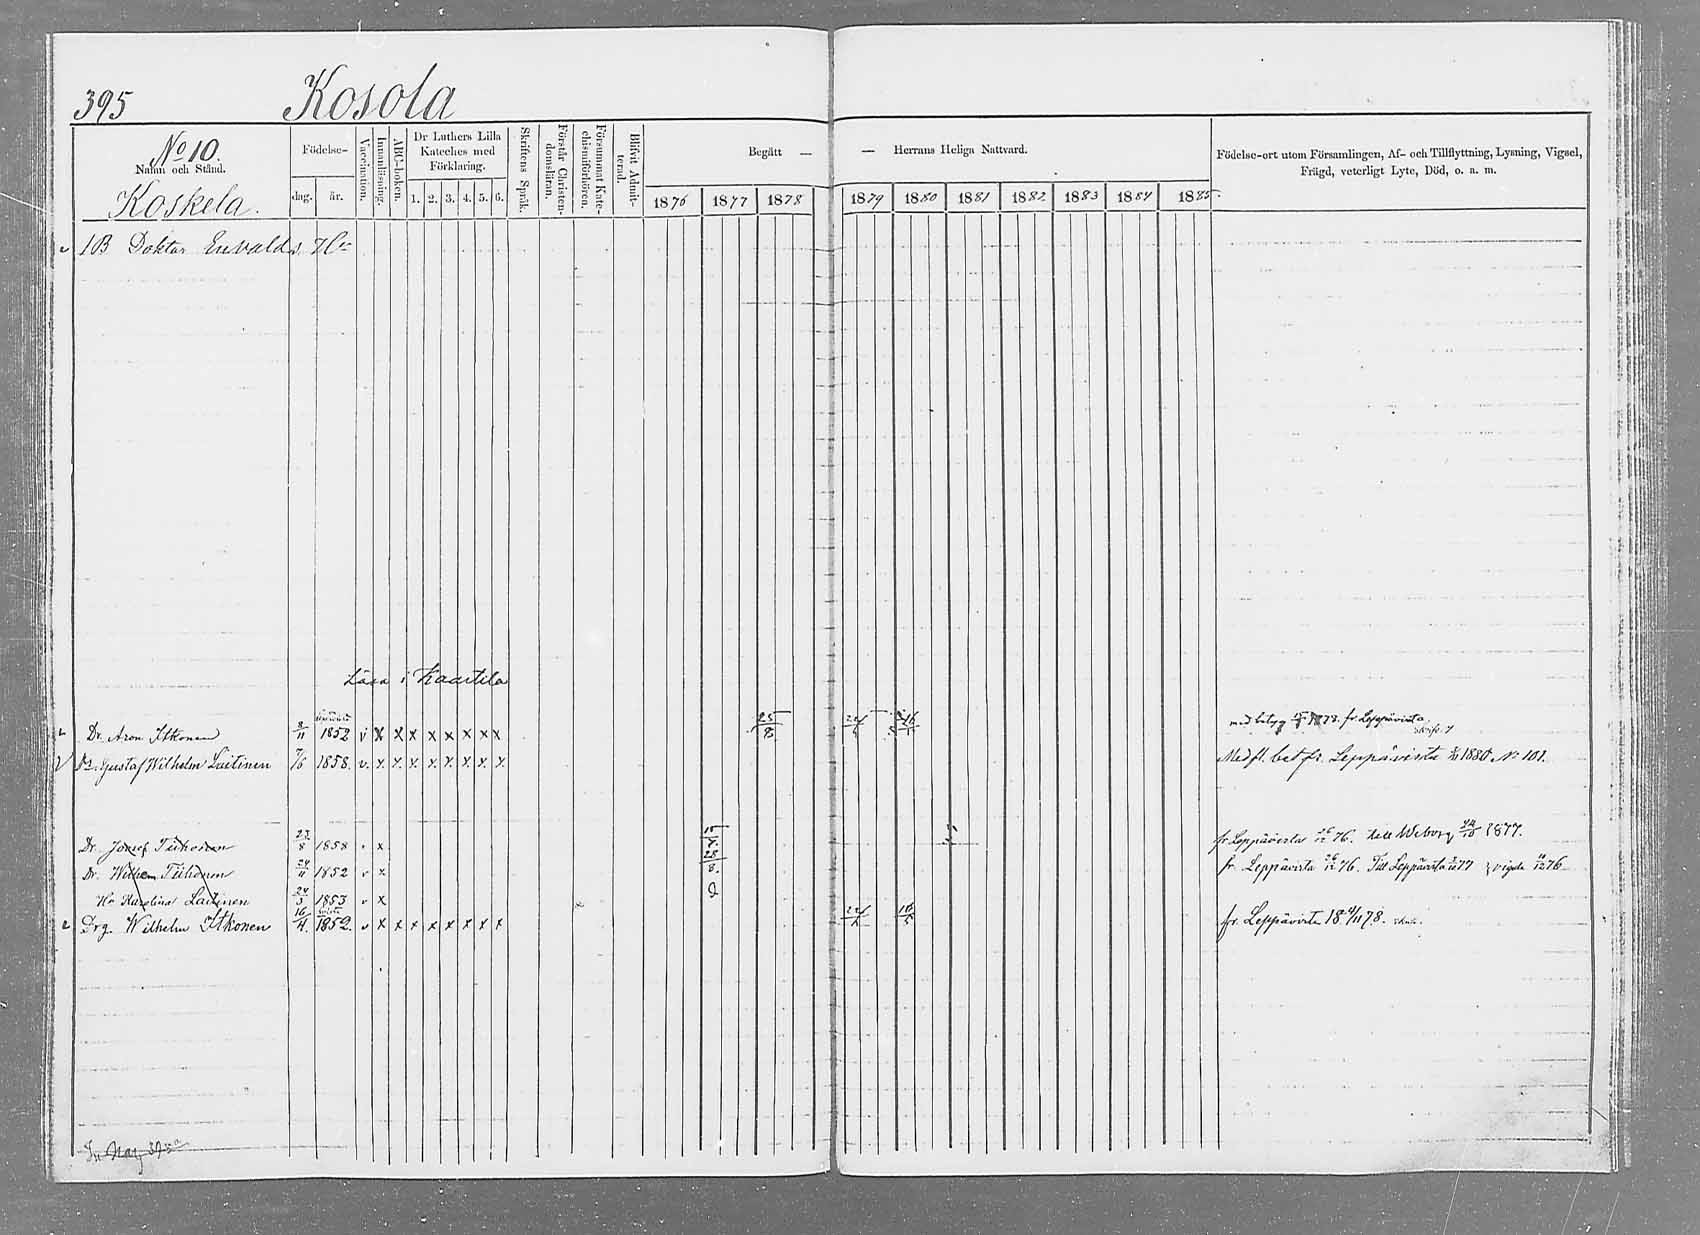 395 Kosola
No 10.
Namn och Stånd.
Koskela.
Födelse-
dag. år.
Vaccination.
Innanläsning.
ABC-boken.
Dr Luthers Lilla
Kateches med
Förklaring.
1. 2. 3. 4. 5. 6.
Skriftens Språk.
Förstår Christen-
domsläran.
Försummat Kate-
chismiförhören.
Blifvit Admit-
terad.
Begått — — Herrans Heliga Nattvard.
1876 1877 1878 1879 1880 1881 1882 1883 1884 1885.
Födelse-ort utom Församlingen, Af- och Tillflyttning, Lysning, Vigsel,
Frägd, veterligt Lyte, Död, o. a. m.
1B Doktor Envalds
Läsa i Kaartila
Dr. Aron Itkonen 8/11 1852 v x x x x x x x x 1878. fr. Leppävirta
Dr. Gustaf Wilhelm Laitinen 7/6 1858. v. x. x. x. x. x. x. x. x. Med fl. bet fr. Leppävirta 1880 No 101.
Dr. Josef Tiihonen 23/8 1858 v x fr Leppävirta 76. till Wiborg 1877.
Dr. Wilhelm Tiihonen 24/11 1852 v x fr. Leppävirta 76. Till Leppävirta 77 vigde 76
Ho Karolina Laitinen 24/3 1853 v x
Drg. Wilhelm Itkonen 16/4. 1852. v x x x x x x x x 24/5 16/5 fr. Leppävirta 18 4/11 78.